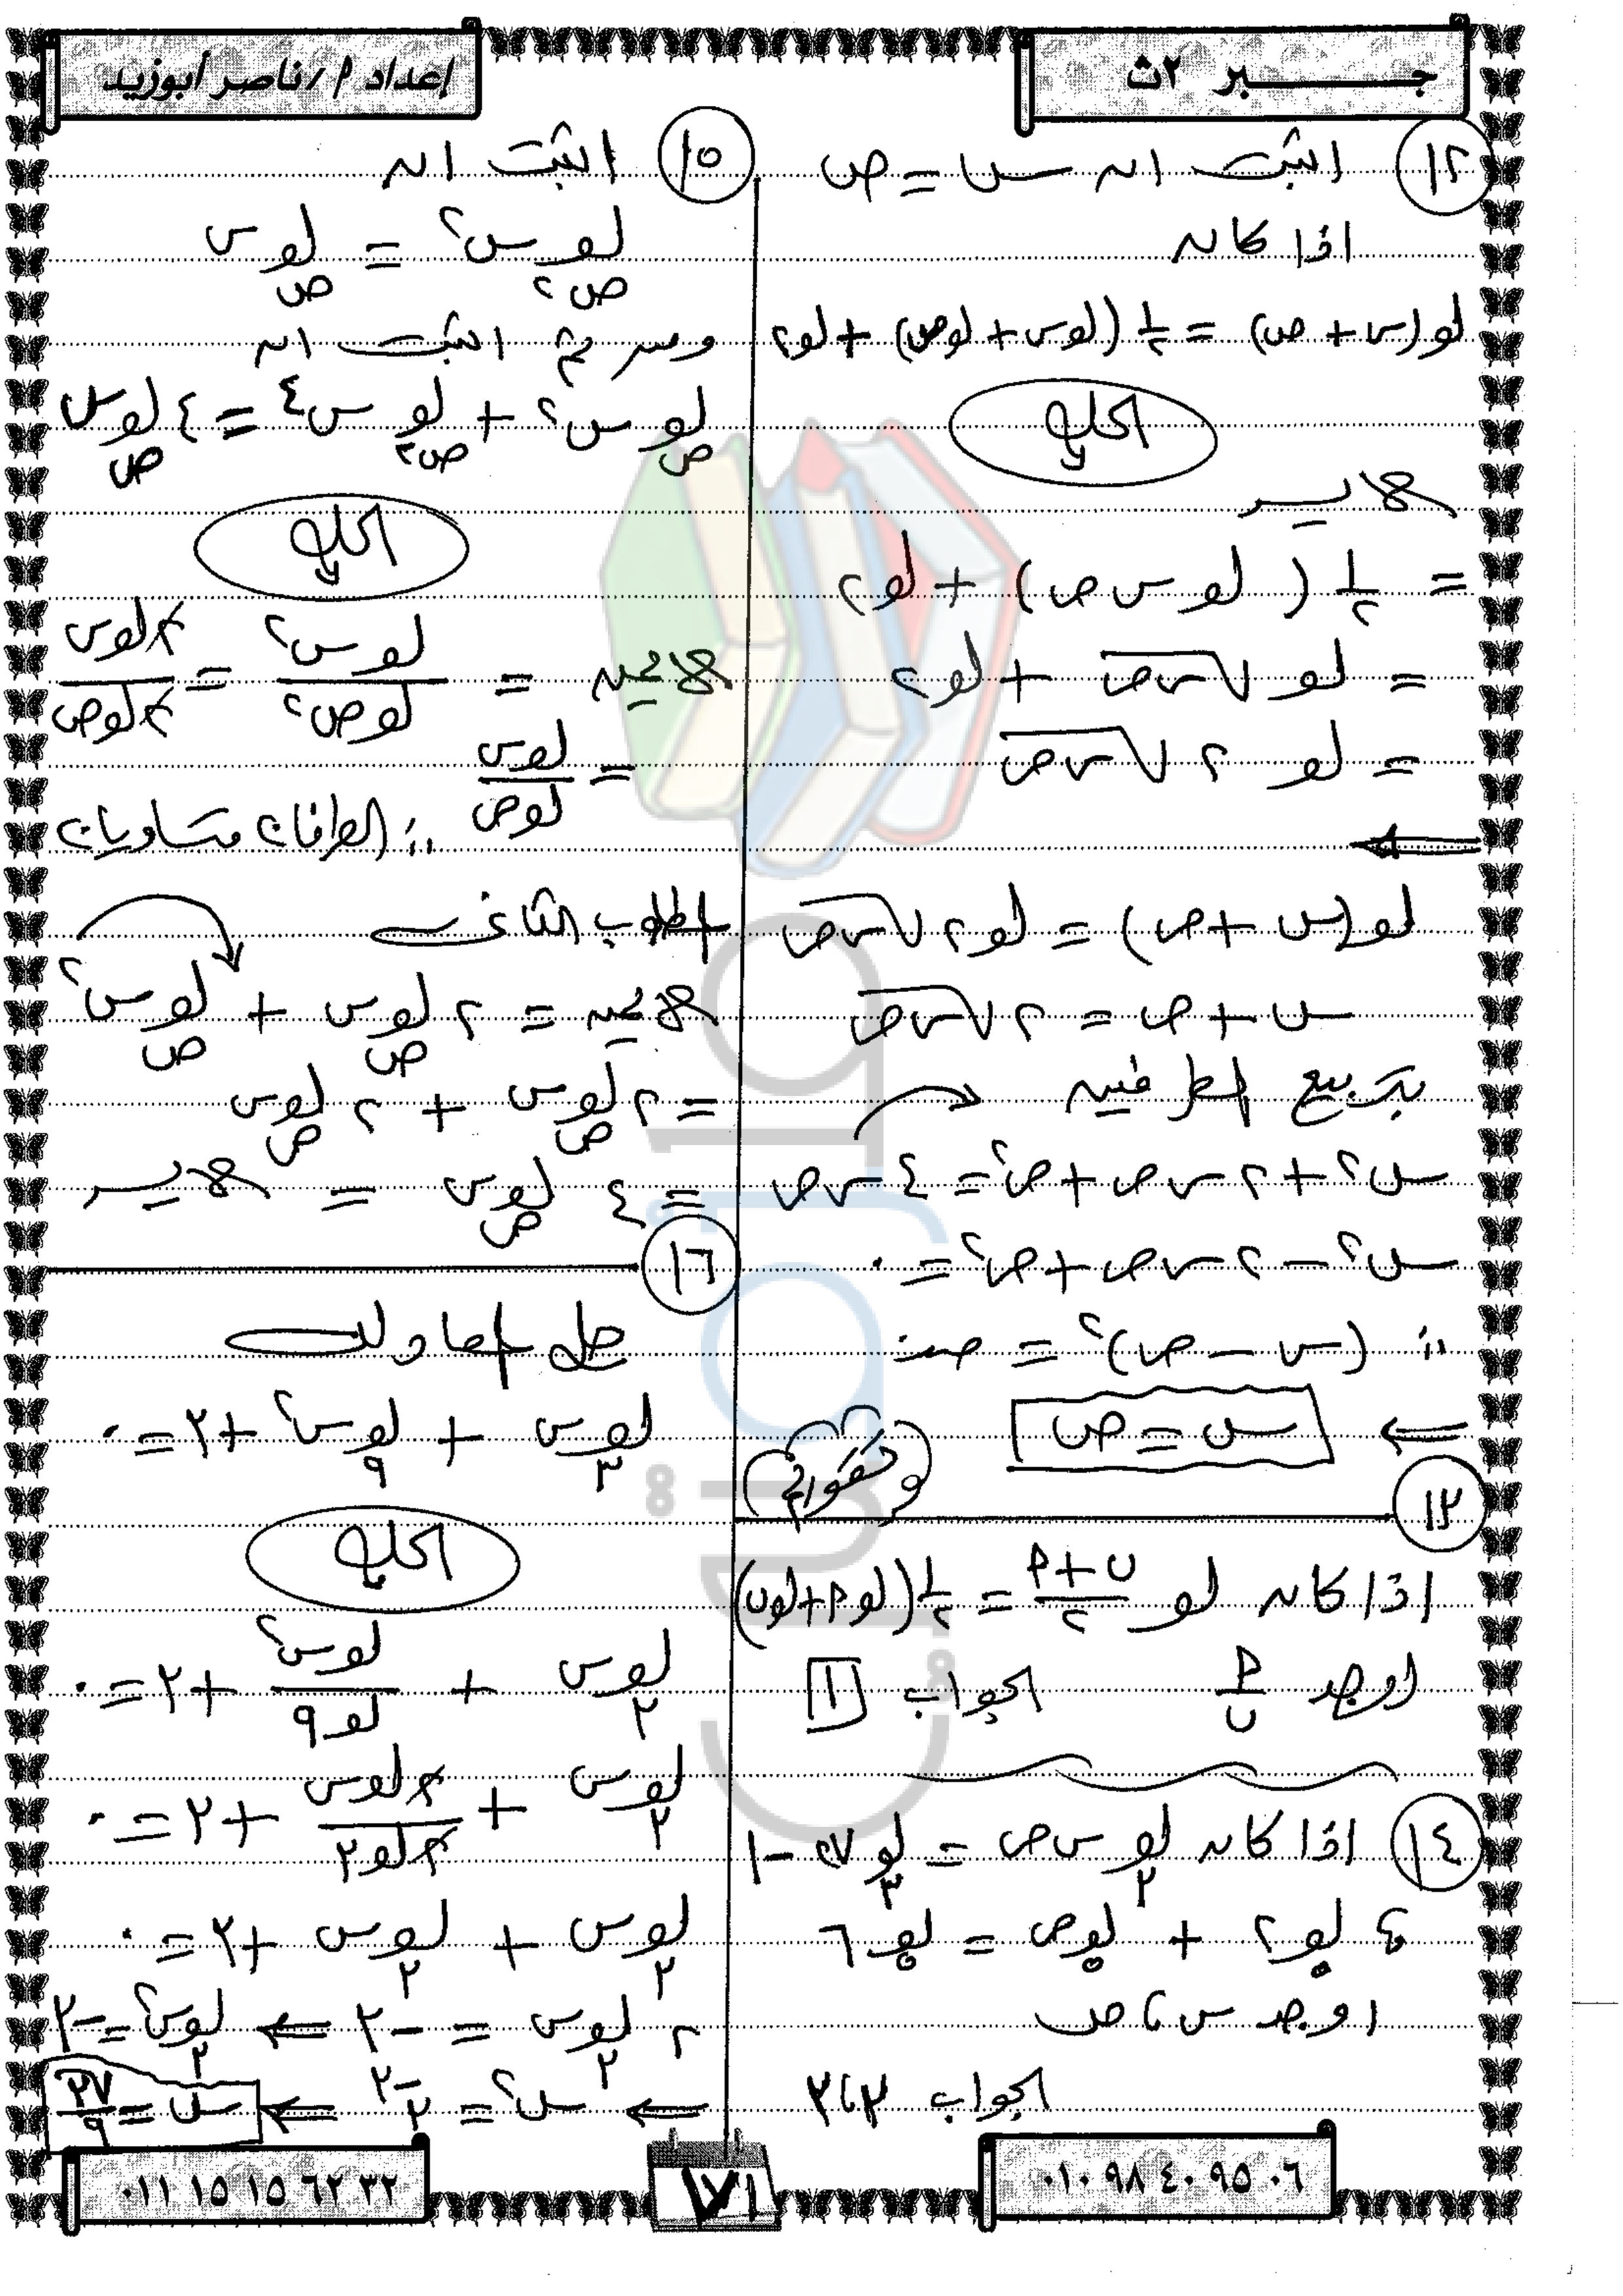 جبر ٢ث
إعداد ٢/ ناصر أبوزيد
١٢ اثبت ان س = ص
اذا كان
لو(س + ص) = ١/٢ (لوس + لوص) + لو٢
الحل
الايسر
= ١/٢ ( لو س ص) + لو٢
= لو √س ص + لو٢
= لو ٢ √س ص
⇐
لو(س + ص) = لو٢ √س ص
س + ص = ٢ √س ص
بتربيع الطرفين
س٢ + ٢ س ص + ص٢ = ٤ س ص
س٢ - ٢ س ص + ص٢ = ٠
∴ (س - ص)٢ = صفر
⇐ س = ص
١٣
اذا كان لو (أ + ب)/٢ = ١/٢ (لو أ + لو ب)
اوجد أ/ب الجواب ١
١٤ اذا كان لو٣ س ص = لو٣ ٢٧ - ١
، لو٥ ٢ + لو٥ ص = لو٥ ٦
اوجد س ، ص
الجواب ٣،٣
١٥ اثبت ان
لوص٢ س٢ = لوص س
ومن ثم اثبت ان
لوص س٢ + لوص٢ س٤ = ٤ لوص س
الحل
الايمن = لو س٢/لو ص٢ = ٢لوس/٢لوص
= لوس/لوص
∴ الطرفان متساويان
المطلوب الثاني
الايمن = ٢ لوص س + لوص س٢
= ٢ لوص س + ٢ لوص س
= ٤ لوص س = الايسر
١٦
حل المعادلة
لو٣ س + لو٩ س٢ + ٣ = ٠
الحل
لو٣ س + لو س٢/لو ٩ + ٣ = ٠
لو٣ س + ٢لوس/٢لو٣ + ٣ = ٠
لو٣ س + لو٣ س + ٣ = ٠
٢ لو٣ س = -٣ ⇐ لو٣ س٢ = -٣
⇐ س٢ = ٣-٣ ⇐ س = √٣/٩
٠١٠ ٩٨ ٤٠ ٩٥ ٠٦
١٧١
٠١١ ١٥ ١٥ ٦٢ ٣٢